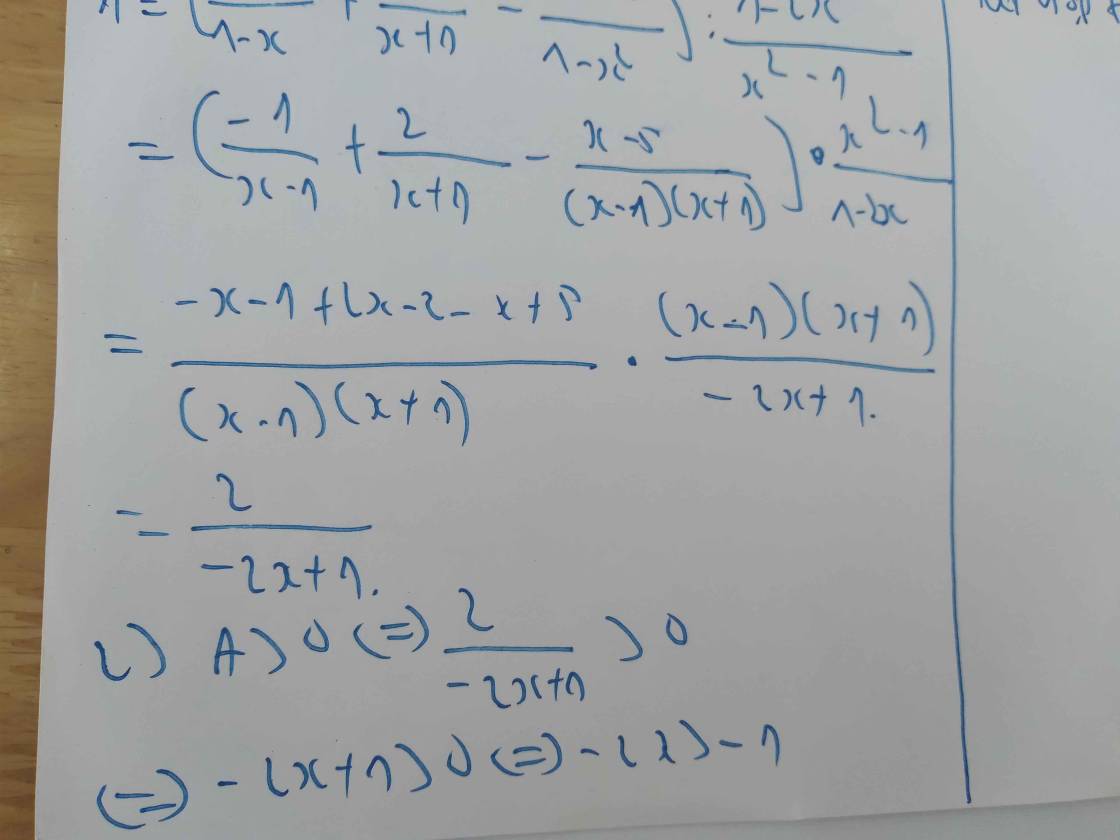 1-x x+1 - 1-x² ) : x² - 1
= ( -1/(x-1) + 2/(x+1) - (x-5)/((x-1)(x+1)) ) • (x²-1)/(1-2x)
= (-x-1+2x-2-x+5)/((x-1)(x+1)) . ((x-1)(x+1))/(-2x+1).
= 2/(-2x+1).
2) A > 0 (=) 2/(-2x+1) > 0
(=) -2x+1 > 0 (=) -2x > -1